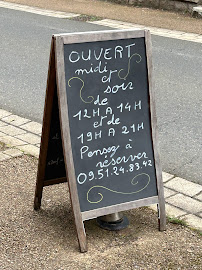 OUVERT
midi
et
soir
de
12H à 14H
et de
19H à 21H
Pensez
à
réserver
09.51.24.83.42